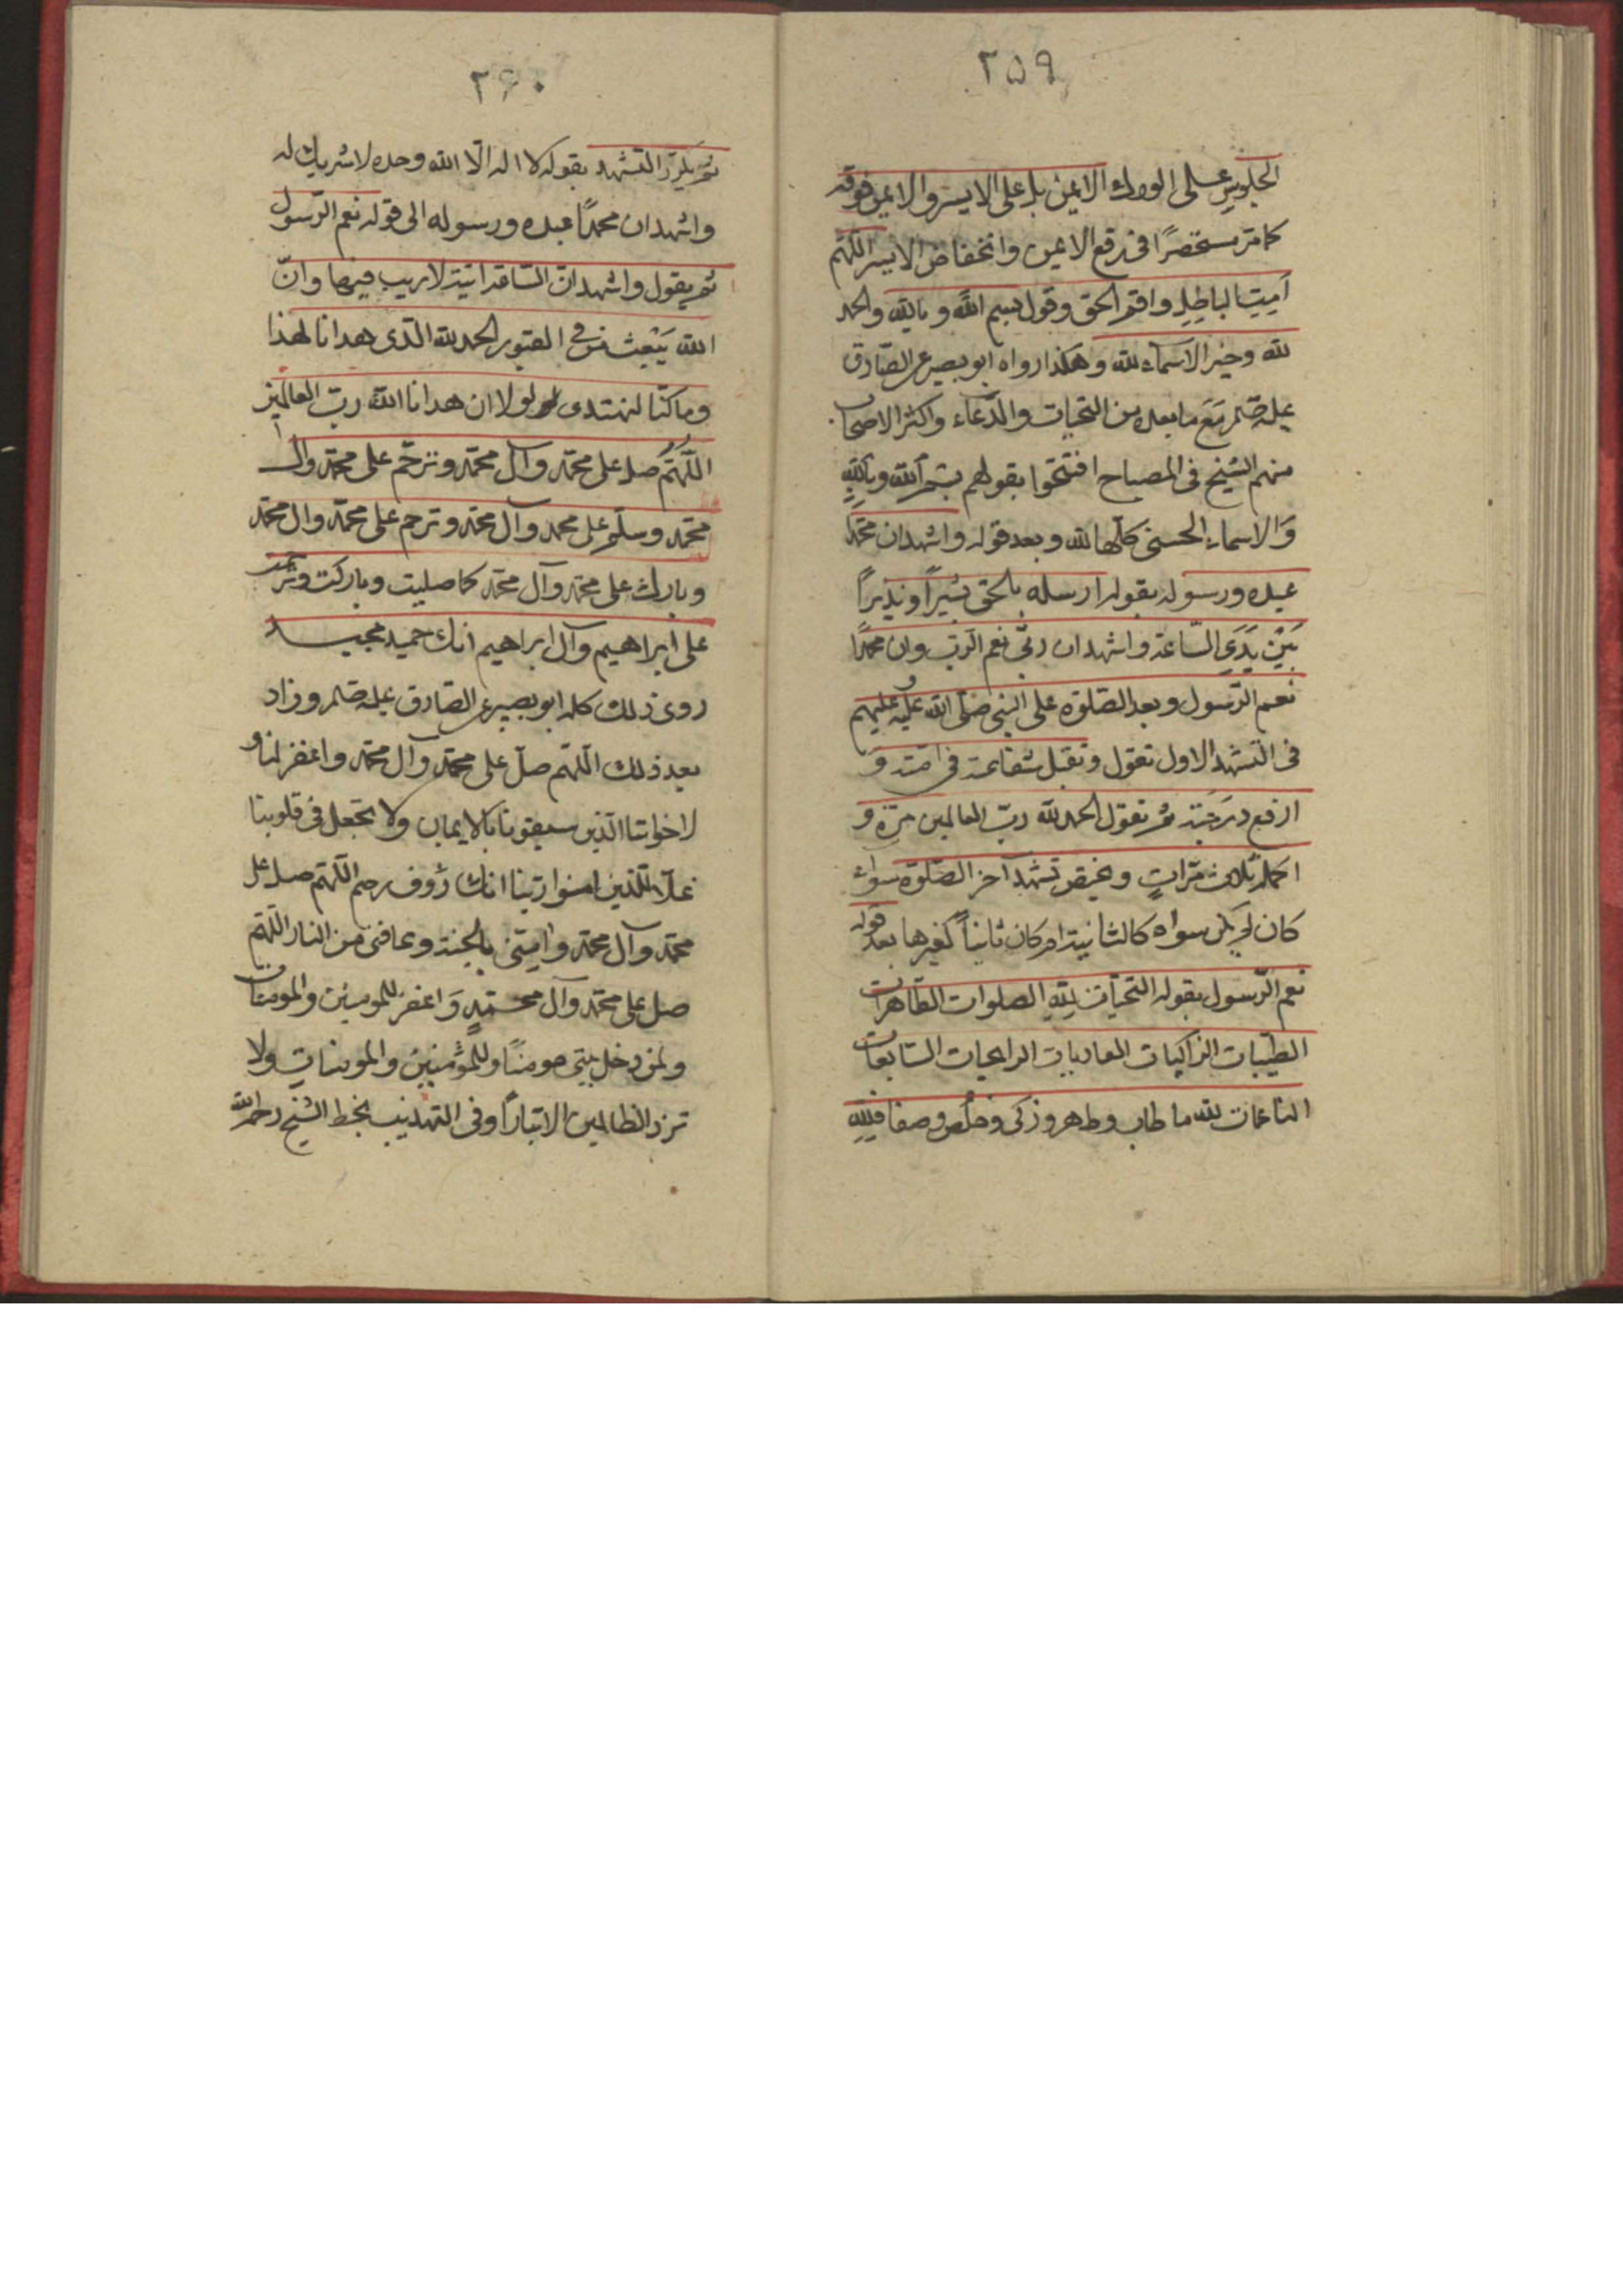 ٢٥٩
الجلوس على الورك الايمن بل على الايسر والايمن فوقه
كما مر مستحضرًا في رفع الايمن وانخفاض الايسر اللّهم
اَمِتِ الباطِلِ واقم الحق وقول بسم اللّه وبالله والحمد
لله وخير الاسماء لله وهكذا رواه ابو بصير عن الصّادق
عليه مَعَ ما بعده من التحيات والدّعاء واكثر الاصحاب
منهم الشيخ في المصباح افتتحوا بقولهم بِسْم اللّه وبِاللّهِ
وَالاسماء الحسنى كلّها لله وبعد قوله واشهد ان محمّدًا
عبده ورسوله بقوله ارسله بالحق بَشيراً ونذيراً
بَيْنَ يَدَيِ السّاعة واشهد ان ربّي نعم الرّب وان محمّدًا
نعم الرّسول وبعد الصّلوة على النبي صلى اللّه عليه وعليهم
في التشهد الاول تقول وتقبل شفاعته في امّته وَ
ارفع دَرَجَتِه ثم تقول الحمد للّه ربّ العالمين مرّة و
اكمله ثلاث مرّاتٍ ويختص تشهد آخر الصّلوة سواء
كان لم يكن سواه كالثانية ام كان ثانياً كغيرها بعد قوله
نعم الرّسول بقوله التحيّات لِلّهِ الصلوات الطّاهرات
الطيّبات الزّاكيات الغاديات الرايحات السّابغات
الناعمات لله ما طاب وطهر وزكى وخلُص وصفا فلِلّهِ
٢٦٠
ثم يكرّر التشهد بقوله لا اله الّا اللّه وحده لا شريك له
واشهد ان محمّدًا عبده ورسوله الى قوله نعم الرّسول
ثم يقول واشهد انّ السّاعة اتية لا ريب فيها وانّ
اللّه يَبْعث من في القبور الحمد للّه الّذى هدانا لهذا
وما كنّا لنهتدى لولا ان هدانا اللّه ربّ العالمين
اللّهُمَّ صل على محمّد وآل محمّد وترحّم على محمّد وال
محمّد وسلّم على محمد وآل محمّد وترحم على محمّد وال محمّد
وبارك على محمّد وآل محمّد كما صليت وباركت وترحمت
على ابراهيم وآل ابراهيم انّك حميد مجيد
روى ذلك كله ابو بصير عن الصّادق عليه وزاد
بعد ذلك اللّهم صلّ على محمّد وآل محمّد واغفر لنا و
لاخواننا الّذين سبقونا بالايمان ولا تجعل في قلوبنا
غلّا للّذين امنوا ربّنا انك رؤوف رحيم اللّهم صل على
محمّد وآل محمّد وامتنى بالجنة وعافني من النار اللّهم
صل على محمّد وآل محمّدٍ وَاغفر للمومنين والمومنات
ولمن دخل بيتي مومنًا وللمُؤمنين والمومنات ولا
تزد الظالمين الا تبارًا وفي التهذيب بخط الشيخ رحمه اللّه